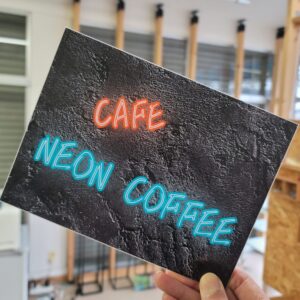 CAFE
NEON COFFEE